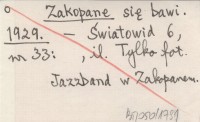 Zakopane się bawi.
1929. - Światowid 6,
nr 33: , il. Tylko fot.
Jazzband w Zakopanem.